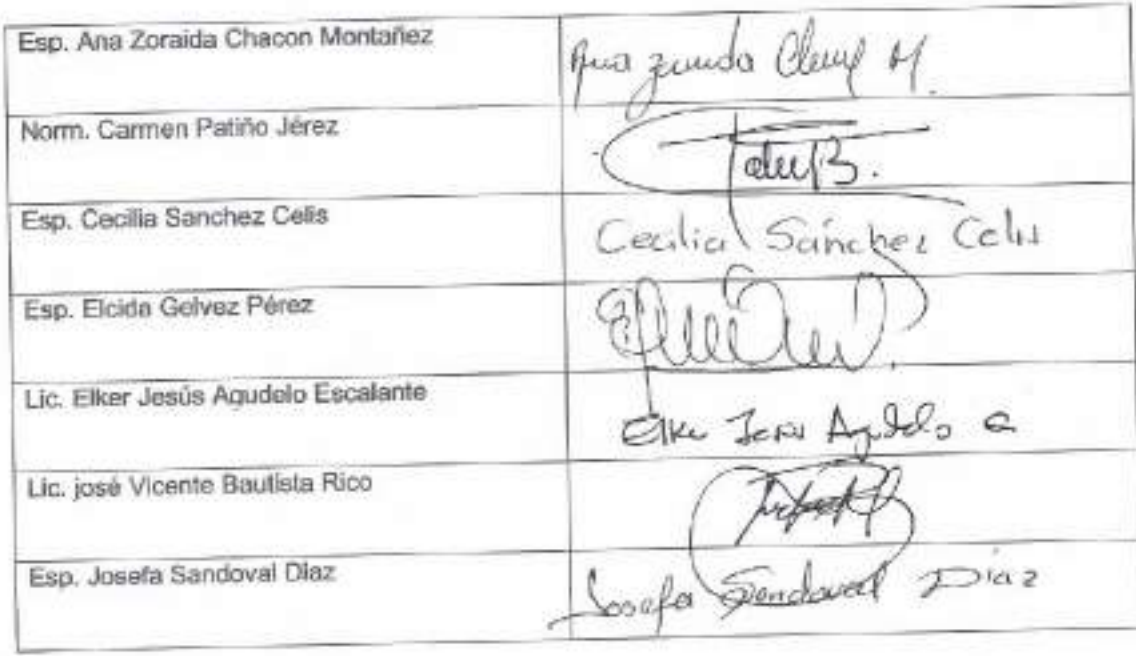 Esp. Ana Zoraida Chacon Montañez
Ana M.
Norm. Carmen Patiño Jérez
Esp. Cecilia Sanchez Celis
Cecilia Sánchez Celis
Esp. Elcida Gelvez Pérez
Lic. Elker Jesús Agudelo Escalante
Elker Jesus Agudelo E
Lic. josé Vicente Bautista Rico
Esp. Josefa Sandoval Diaz
Josefa Sandoval Diaz